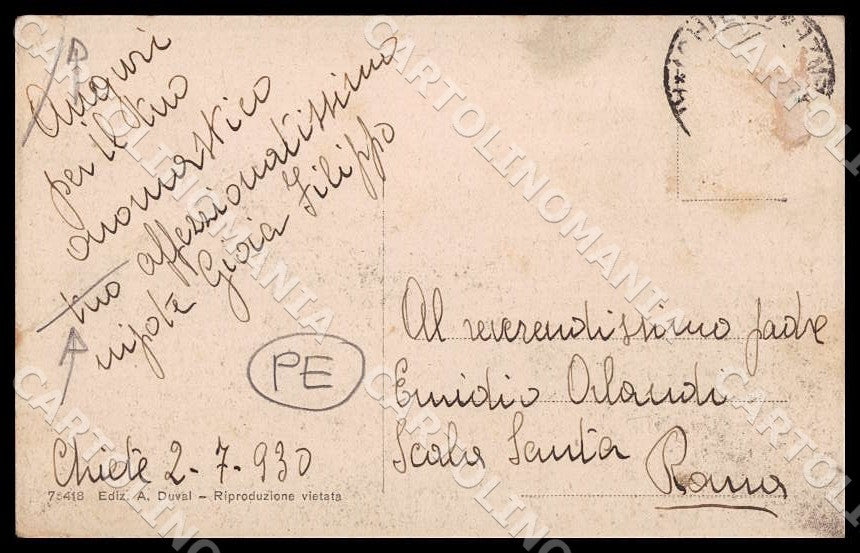 Auguri
per il tuo
onomastico
tuo affezionatissimo
nipote Gioia Filippo
PE
Chiete 2-7-930
Al reverendissimo padre
Emidio Orlandi
Scala Santa
Roma
Ediz. A. Duval – Riproduzione vietata
CARTOLINOMANIA